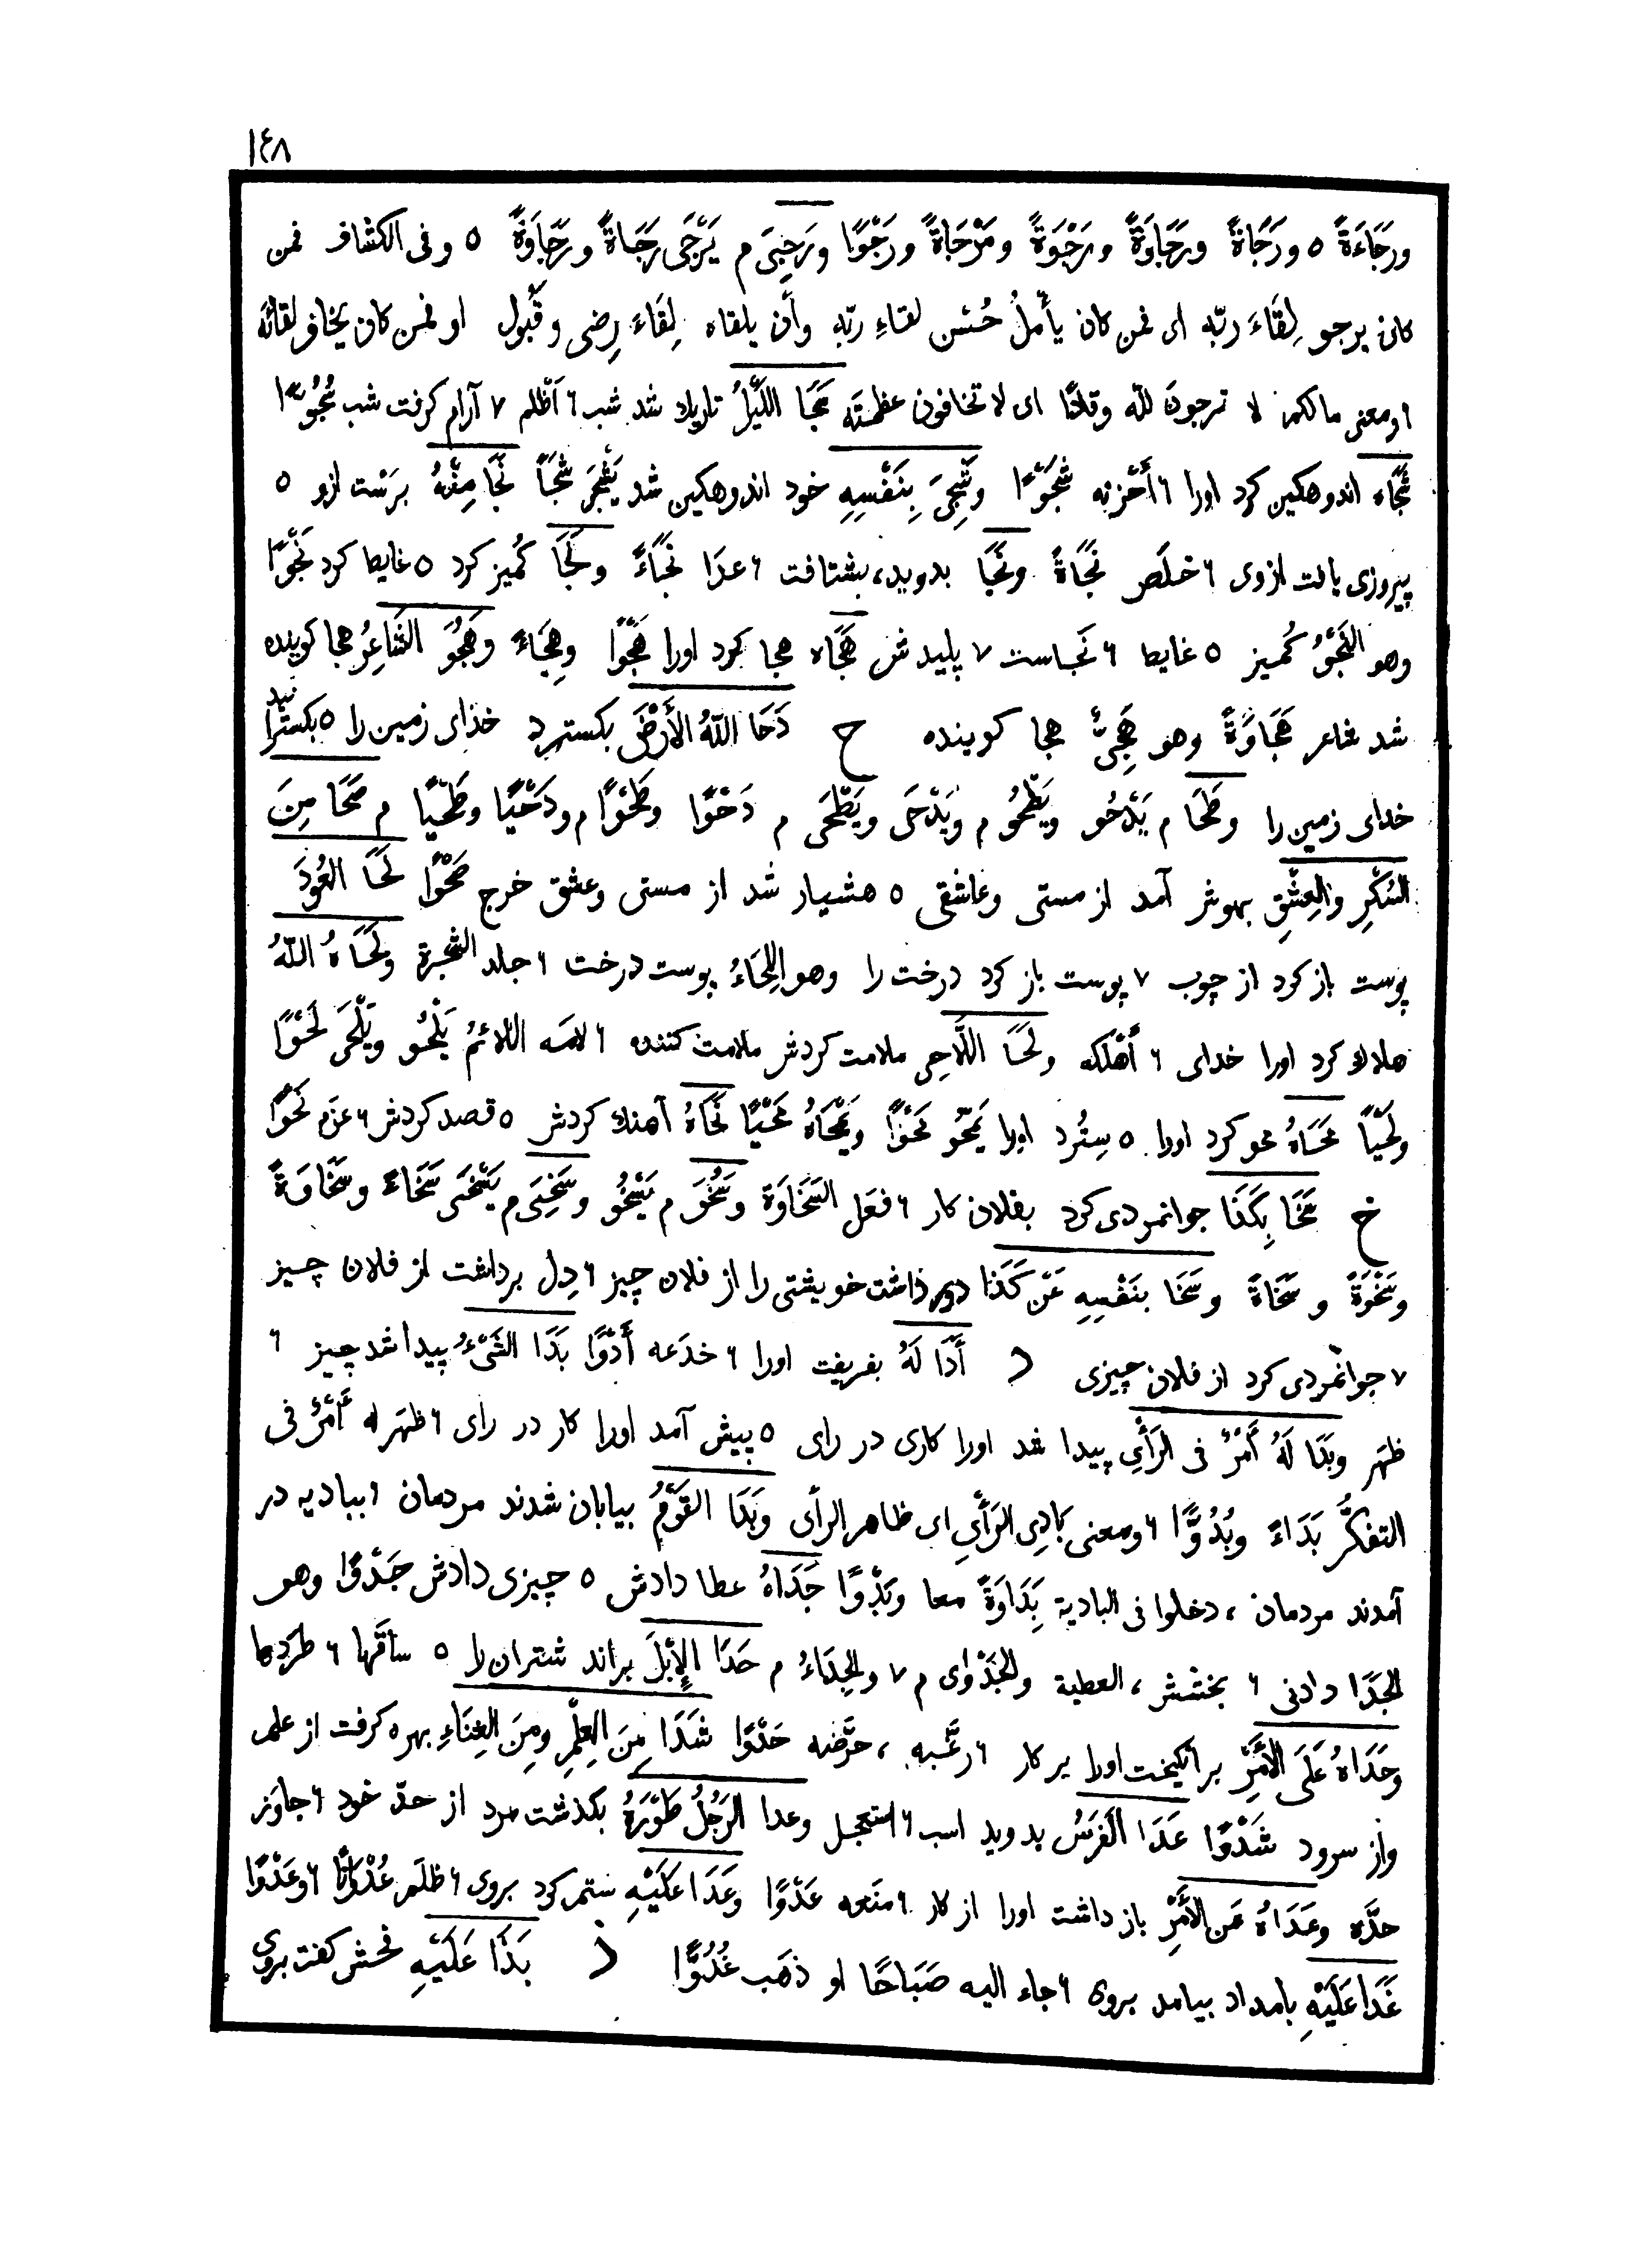 ١٤٨
ورَجَاءَةً ٥ ورَجَاةً ورَجَاوَةً ورَجْوَةً ومَرْجَاةً ورَجْوًا ورَجِىَ م يَرْجَى رَجَاةً ورَجَاوَةً ٥ وفى الكشاف فمن
كان يرجو لِقَاءَ ربّه اى فمن كان يأملُ حُسْن لقاءِ ربّه وأن يلقاه لِقَاءَ رِضى وقَبُول او فمن كان يخاف لقائه
٦ ومعنى مالكم لا ترجون للّه وقارًا اى لا تخافون عظمتَه سَجَا اللَّيْلُ تاريك شد شب ٦ اَظْلم ٧ آرام كرفت شب سُجُوًّا
شَجَاه اندوهكين كرد اورا ٦ أَحْزنه شَجْوًا وشَجِىَ بِنَفْسِهِ خود اندوهكين شد يَشْجَى شَجًا نَجَا مِنْهُ برَست ازو ٥
پيروزى يافت ازوى ٦ خلَص نَجَاةً ونَجَا بدويد، بشتافت ٦ عدَا نَجَاءً ونَجَا كُميز كرد ٥ غايط كرد نَجْوًا
وهو النَّجْوُ كُميز ٥ غايط ٦ نَجاست ٧ پليدش هَجَاه هجا كرد اورا هَجْوًا وهِجَاءً وهَجُوَ الشَّاعِرُ هجا كوينده
شد شاعر هَجَاوَةً وهو هَجِىٌّ هجا كوينده ح دَحَا اللّهُ الأَرْضَ بكسترد خذاى زمين را ٥ بكسترانيد
خداى زمين را وطَحَا م يَدْحُو ويَطْحُو م ويَدْحَى ويَطْحَى م دَحْوًا وطَحْوًا م ودَحْيًا وطَحْيًا م صَحَا مِنَ
السُّكْرِ والعِشْقِ بهوش آمد از مستى وعاشقى ٥ هشيار شد از مستى وعشق خرج صَحْوًا لَحَا العُودَ
پوست باز كرد از چوب ٧ پوست باز كرد درخت را وهو اللِّحَاءُ پوست درخت ٦ جلد الشجرة ولَحَاهُ اللّهُ
هلاك كرد اورا خداى ٦ أَهْلكه ولَحَا اللَّاحِى ملامت كردش ملامت كننده ٦ لامَه اللائمُ يَلْحُو ويَلْحَى لَحْوًا
ولَحْيًا مَحَاهُ محو كرد اورا ٥ سِتُرد اورا يَمْحُو مَحْوًا ويَمْحَاهُ مَحْيًا نَحَاهُ آهنك كردش ٥ قصد كردش ٦ عزَم نَحْوًا
خ سَخَا بِكَذَا جوانمردى كرد بفلان كار ٦ فعَل السَّخَاوَة وسَخُوَ م يَسْخُو وسَخِىَ م يَسْخَى سَخَاءً وسَخَاوَةً
وسَخْوَةً وسَخَاةً وسَخَا بنَفْسِهِ عَنْ كَذَا دور ذاشت خويشتى را از فلان چيز ٦ دِل برداشت از فلان چيز
٧ جوانمردى كرد از فلان چيزى د أَدَا لَهُ بفريفت اورا ٦ خدَعه أَدْوًا بَدَا الشَّىْءُ پيدا شد چيز ٦
ظهَر وبَدَا لَهُ أَمْرٌ فى الرَأْىِ پيدا شد اورا كارى در راى ٥ پيش آمد اورا كار در راى ٦ ظهَر له أَمْرٌ فى
التفكُّر بَدَاءً وبُدُوًّا ٦ ومعنى بَادِى الرَأْىِ اى ظاهر الرأى وبَدَا القَوْمُ بيابان شدند مردمان ٦ بباديه در
آمدند مردمان، دخلوا فى البادية بِدَاوَةً معا وبَدْوًا جَدَاهُ عطا دادش ٥ چيزى دادش جَدْوًا وهو
الجَدَا دادنى ٦ بخشش، العطية والجَدْوَاى م ٧ والجِدَاءُ م حَدَا الإِبْلَ براند شتران را ٥ ساقَها ٦ طرَدها
وحَدَاهُ عَلَى الأَمْرِ برانكيخت اورا بر كار ٦ رغَّبه، حرَّضه حَدْوًا شَدَا مِنَ العِلْمِ ومِنَ الغِنَاءِ بهره كرفت از علم
واز سرود شَدْوًا عَدَا الفَرَسُ بدويد اسب ٦ استعجل وعدا الرَجُلُ طَوْرَهُ بكذشت مرد از حدّ خود ٦ جاوَز
حدَّه وعَدَاهُ عَنِ الأَمْرِ باز داشت اورا از كار ٦ منَعه عَدْوًا وعَدَا عَلَيْهِ ستم كرد بروى ٦ ظلَم عُدْوَانًا ٦ وعَدْوًا
غَدَا عَلَيْهِ بامداد بيامد بروى ٦ جاء اليه صَبَاحًا او ذهَب غُدُوًّا ذ بَذَا عَلَيْهِ فحش كفت بروى